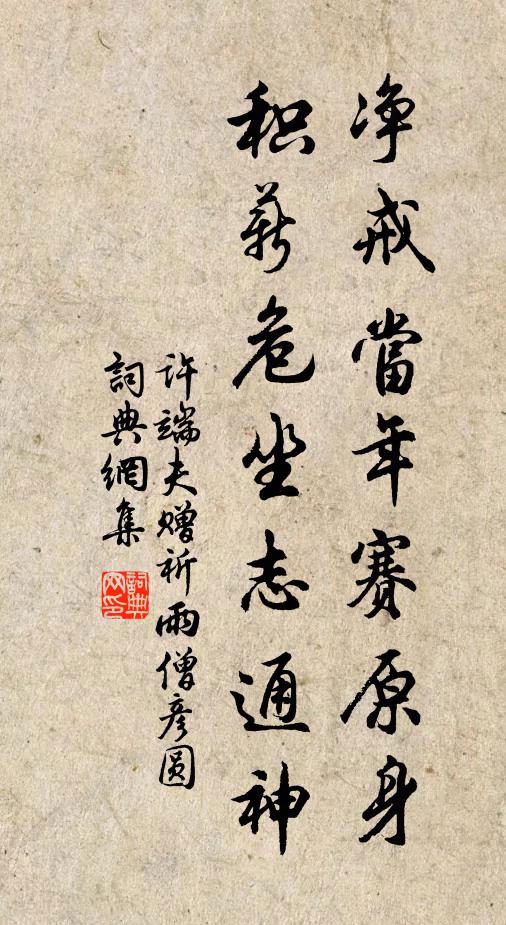 净戒當年賽原身
积薪危坐志通神
许端夫赠祈雨僧彦圆
詞典網集
詞典网印